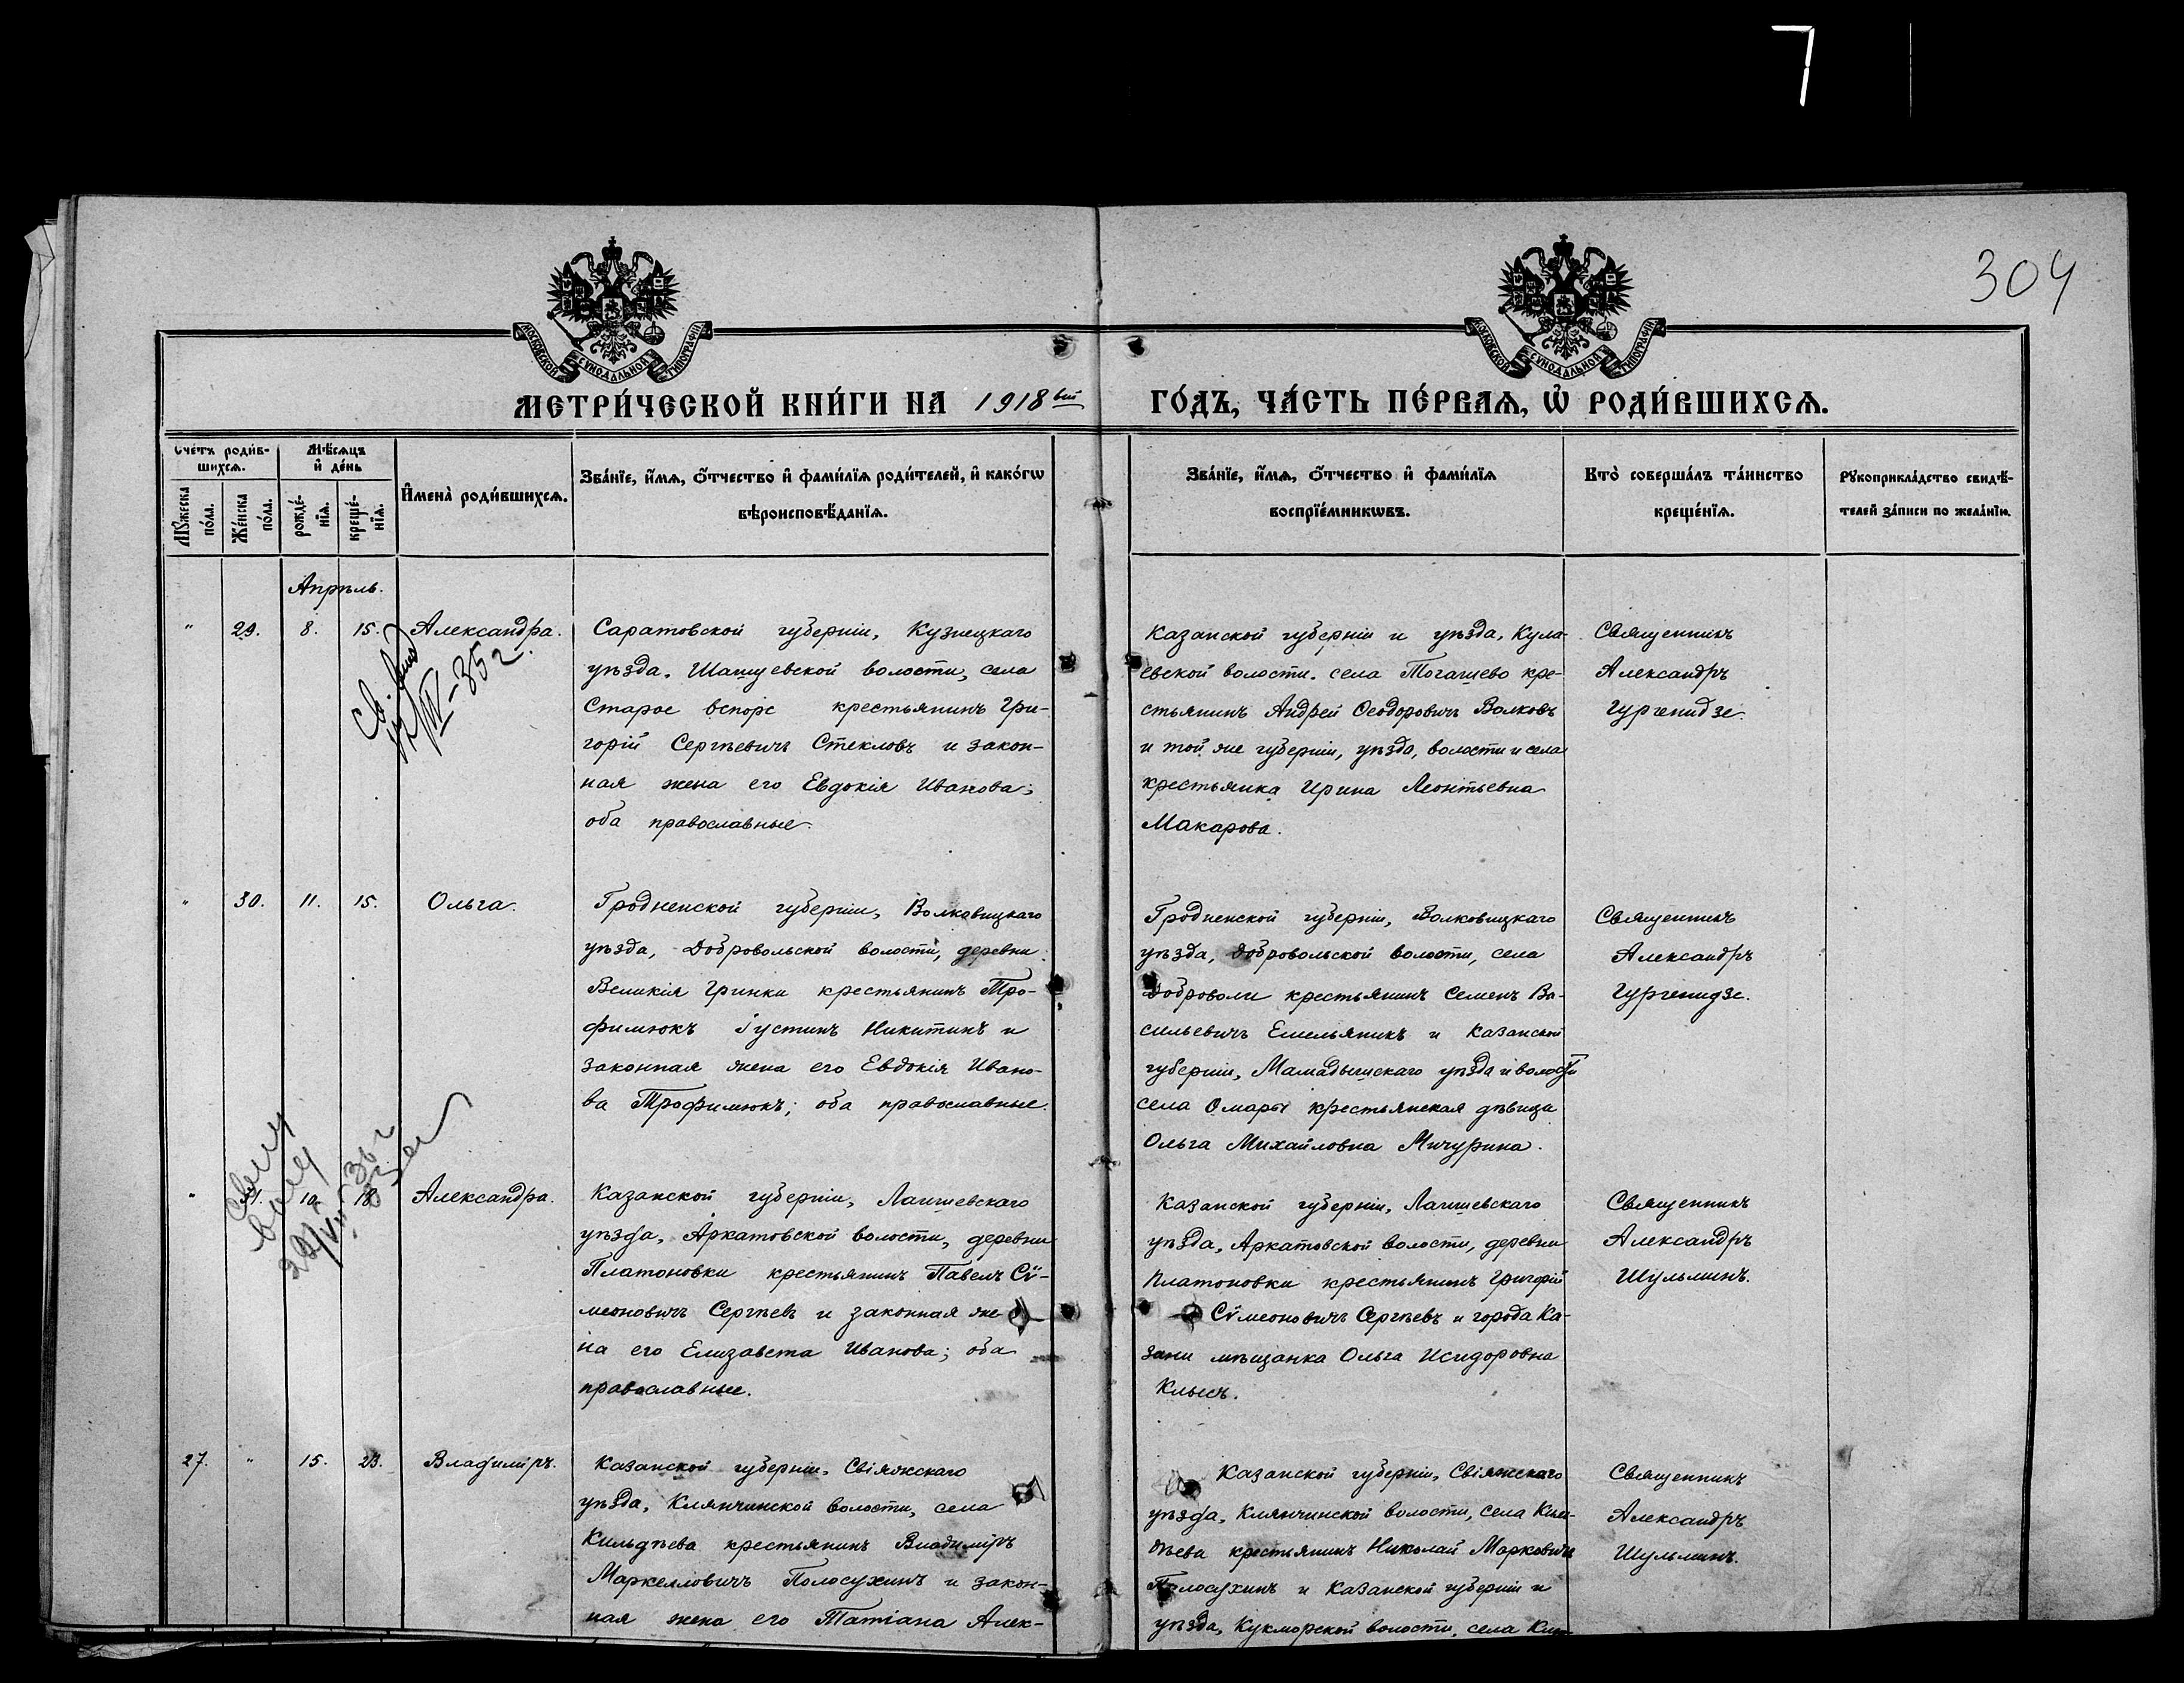 7
304
МОСКОВСКОЙ СѴНОДАЛЬНОЙ ТИПОГРАФІИ
МОСКОВСКОЙ СѴНОДАЛЬНОЙ ТИПОГРАФІИ
МЕТРИ́ЧЕСКОЙ КНИ́ГИ НА 1918 вый ГО́ДЪ, ЧА́СТЬ ПЕ́РВАѦ, Ѡ҆ РОДИ́ВШИХСѦ.
Сче́тъ роди́в-
шихсѧ.
Мꙋ́жеска
по́ла.
Же́нска
по́ла.
Мѣ́сѧцъ
и҆ де́нь
рожде́-
нїѧ.
креще́-
нїѧ.
И҆мена̀ роди́вшихсѧ.
Зва́нїе, и҆́мѧ, ѻ҆́тчество и҆ фами́лїѧ роди́телей, и҆ како́гѡ
вѣроисповѣ́данїѧ.
Зва́нїе, и҆́мѧ, ѻ҆́тчество и҆ фами́лїѧ
воспрїе́мникѡвъ.
Кто̀ соверша́лъ та́инство
креще́нїѧ.
Рꙋкоприкла́дство свидѣ́-
телей за́писи по жела́нїю.
Апрѣль.
" 29. 8. 15. Александра.
Саратовской губерніи, Кузнецкаго
уѣзда, волости, села
Старое крестьянинъ Гри-
горій Сергѣевичъ Стекловъ и закон-
ная жена его Евдокія Иванова;
оба православные.
Казанской губерніи и уѣзда, Кула-
евской волости, села Тогашево кре-
стьянинъ Андрей Ѳеодоровичъ Волковъ
и той же губерніи, уѣзда, волости и села
крестьянка Ирина Леонтьевна
Макарова.
Священникъ
Александръ
Гургенидзе.
" 30. 11. 15. Ольга.
Гродненской губерніи, Волкавицкаго
уѣзда, Добровольской волости, деревни
Великія Гринки крестьянинъ Тро-
фимюкъ Іустинъ Никитинъ и
законная жена его Евдокія Ивано-
ва Трофимюкъ; оба православные.
Гродненской губерніи, Волковицкаго
уѣзда, Добровольской волости, села
Доброволи крестьянинъ Семенъ Ва-
сильевичъ Емельяникъ и Казанской
губерніи, Мамадышскаго уѣзда и волости
села Омары крестьянская дѣвица
Ольга Михайловна Мичурина.
Священникъ
Александръ
Гургенидзе.
" 18. Александра.
Казанской губерніи, Лаишевскаго
уѣзда, Аркатовской волости, деревни
Платоновки крестьянинъ Павелъ Сѵ-
меоновичъ Сергѣевъ и законная же-
на его Елизавета Иванова; оба
православные.
Казанской губерніи, Лаишевскаго
уѣзда, Аркатовской волости, деревни
Платоновки крестьянинъ Григорій
Сѵмеоновичъ Сергѣевъ и города Ка-
зани мѣщанка Ольга Исидоровна
Священникъ
Александръ
Шульминъ.
27. " 15. 23. Владиміръ.
Казанской губерніи, Свіяжскаго
уѣзда, Клянчинской волости, села
Кильдѣева крестьянинъ Владиміръ
Маркелловичъ Полосухинъ и закон-
ная жена его Татіана Алек-
Казанской губерніи, Свіяжскаго
уѣзда, Клянчинской волости, села Киль-
дѣева крестьянинъ Николай Марковичъ
Полосухинъ и Казанской губерніи и
уѣзда, Кукморской волости, села
Священникъ
Александръ
Шульминъ.